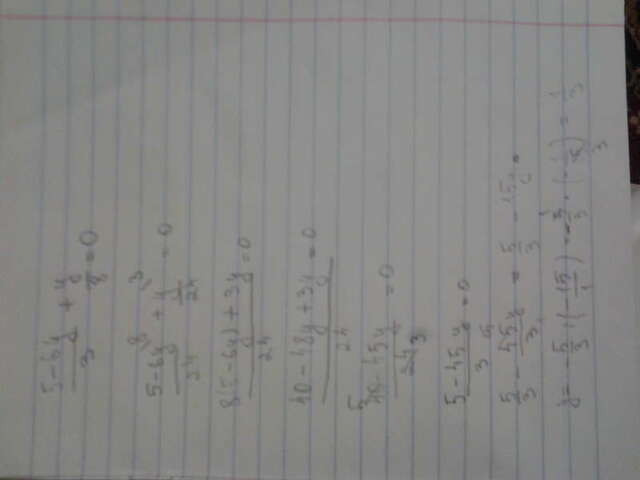 (5-6y)/3 + y/8 = 0
(5-6y)/24 + y/24 = 0 8 3
(8(5-6y) + 3y)/24 = 0
(40-48y+3y)/24 = 0
(40-45y)/24 = 0 5 3
(5-45y)/3 = 0
5/3 - 45y/3 = 5/3 - 15y =
y = -5/3 : (-15/1) = -5/3 · (-1/15) = 1/3